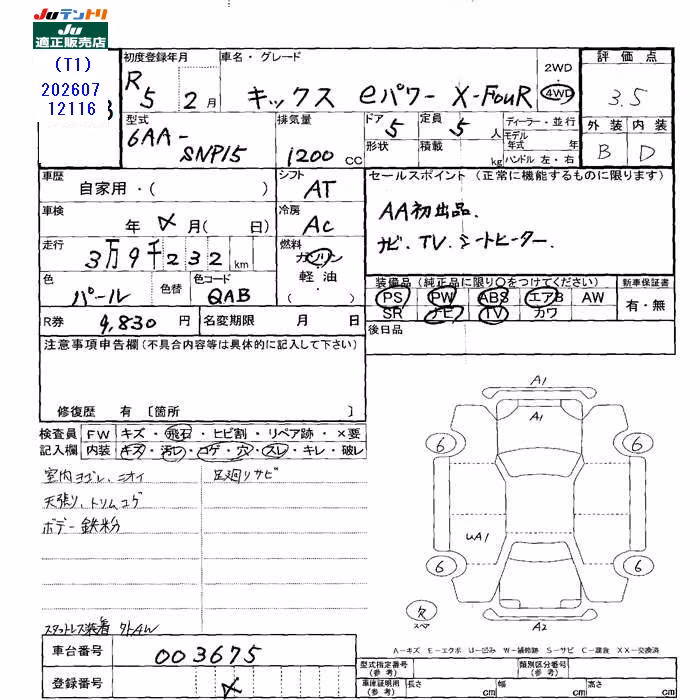 Juテントリ
Ju
適正販売店
(T1)
202607
12116
初度登録年月
R5 2月
車名・グレード
キックス eパワー X-FouR
2WD
4WD
評価点
3.5
外装 内装
B D
型式
6AA-
SNP15
排気量
1200 CC
ドア 5
定員 5 人
形状
積載 kg
ディーラー・並行
モデル年式 年
ハンドル 左・右
車歴
自家用・( )
シフト
AT
車検
年 メ 月( 日)
冷房
AC
走行
3万9千232 km
燃料
ガソリン
軽油
( ・ )
色
パール
色替
色コード
QAB
R券 9,830 円
名変期限 月 日
セールスポイント (正常に機能するものに限ります)
AA初出品.
ナビ. TV. シートヒーター.
装備品(純正品に限り○をつけてください)
PS PW ABS エアB AW
SR ナビ TV カワ
新車保証書
有・無
後日品
注意事項申告欄(不具合内容等は具体的に記入して下さい)
修復歴 有 〔箇所 〕
検査員 FW キズ・飛石・ヒビ割・リペア跡・×要
記入欄 内装 キズ・汚レ・コゲ・穴・スレ・キレ・破レ
室内ヨゴレ、ニオイ
足廻リサビ
天張リ、トリムコゲ
ボデー鉄粉
スタットレス装着
A1
A1
6 6
UA1
6 6
欠
スペア
A2
A-キズ E-エクボ U-凹み W-補修跡 S-サビ C-腐食 XX-交換済
車台番号 003675
登録番号 メ
型式指定番号(参考)
類別区分番号(参考)
車庫証明用(参考)
長さ cm
幅 cm
高さ cm